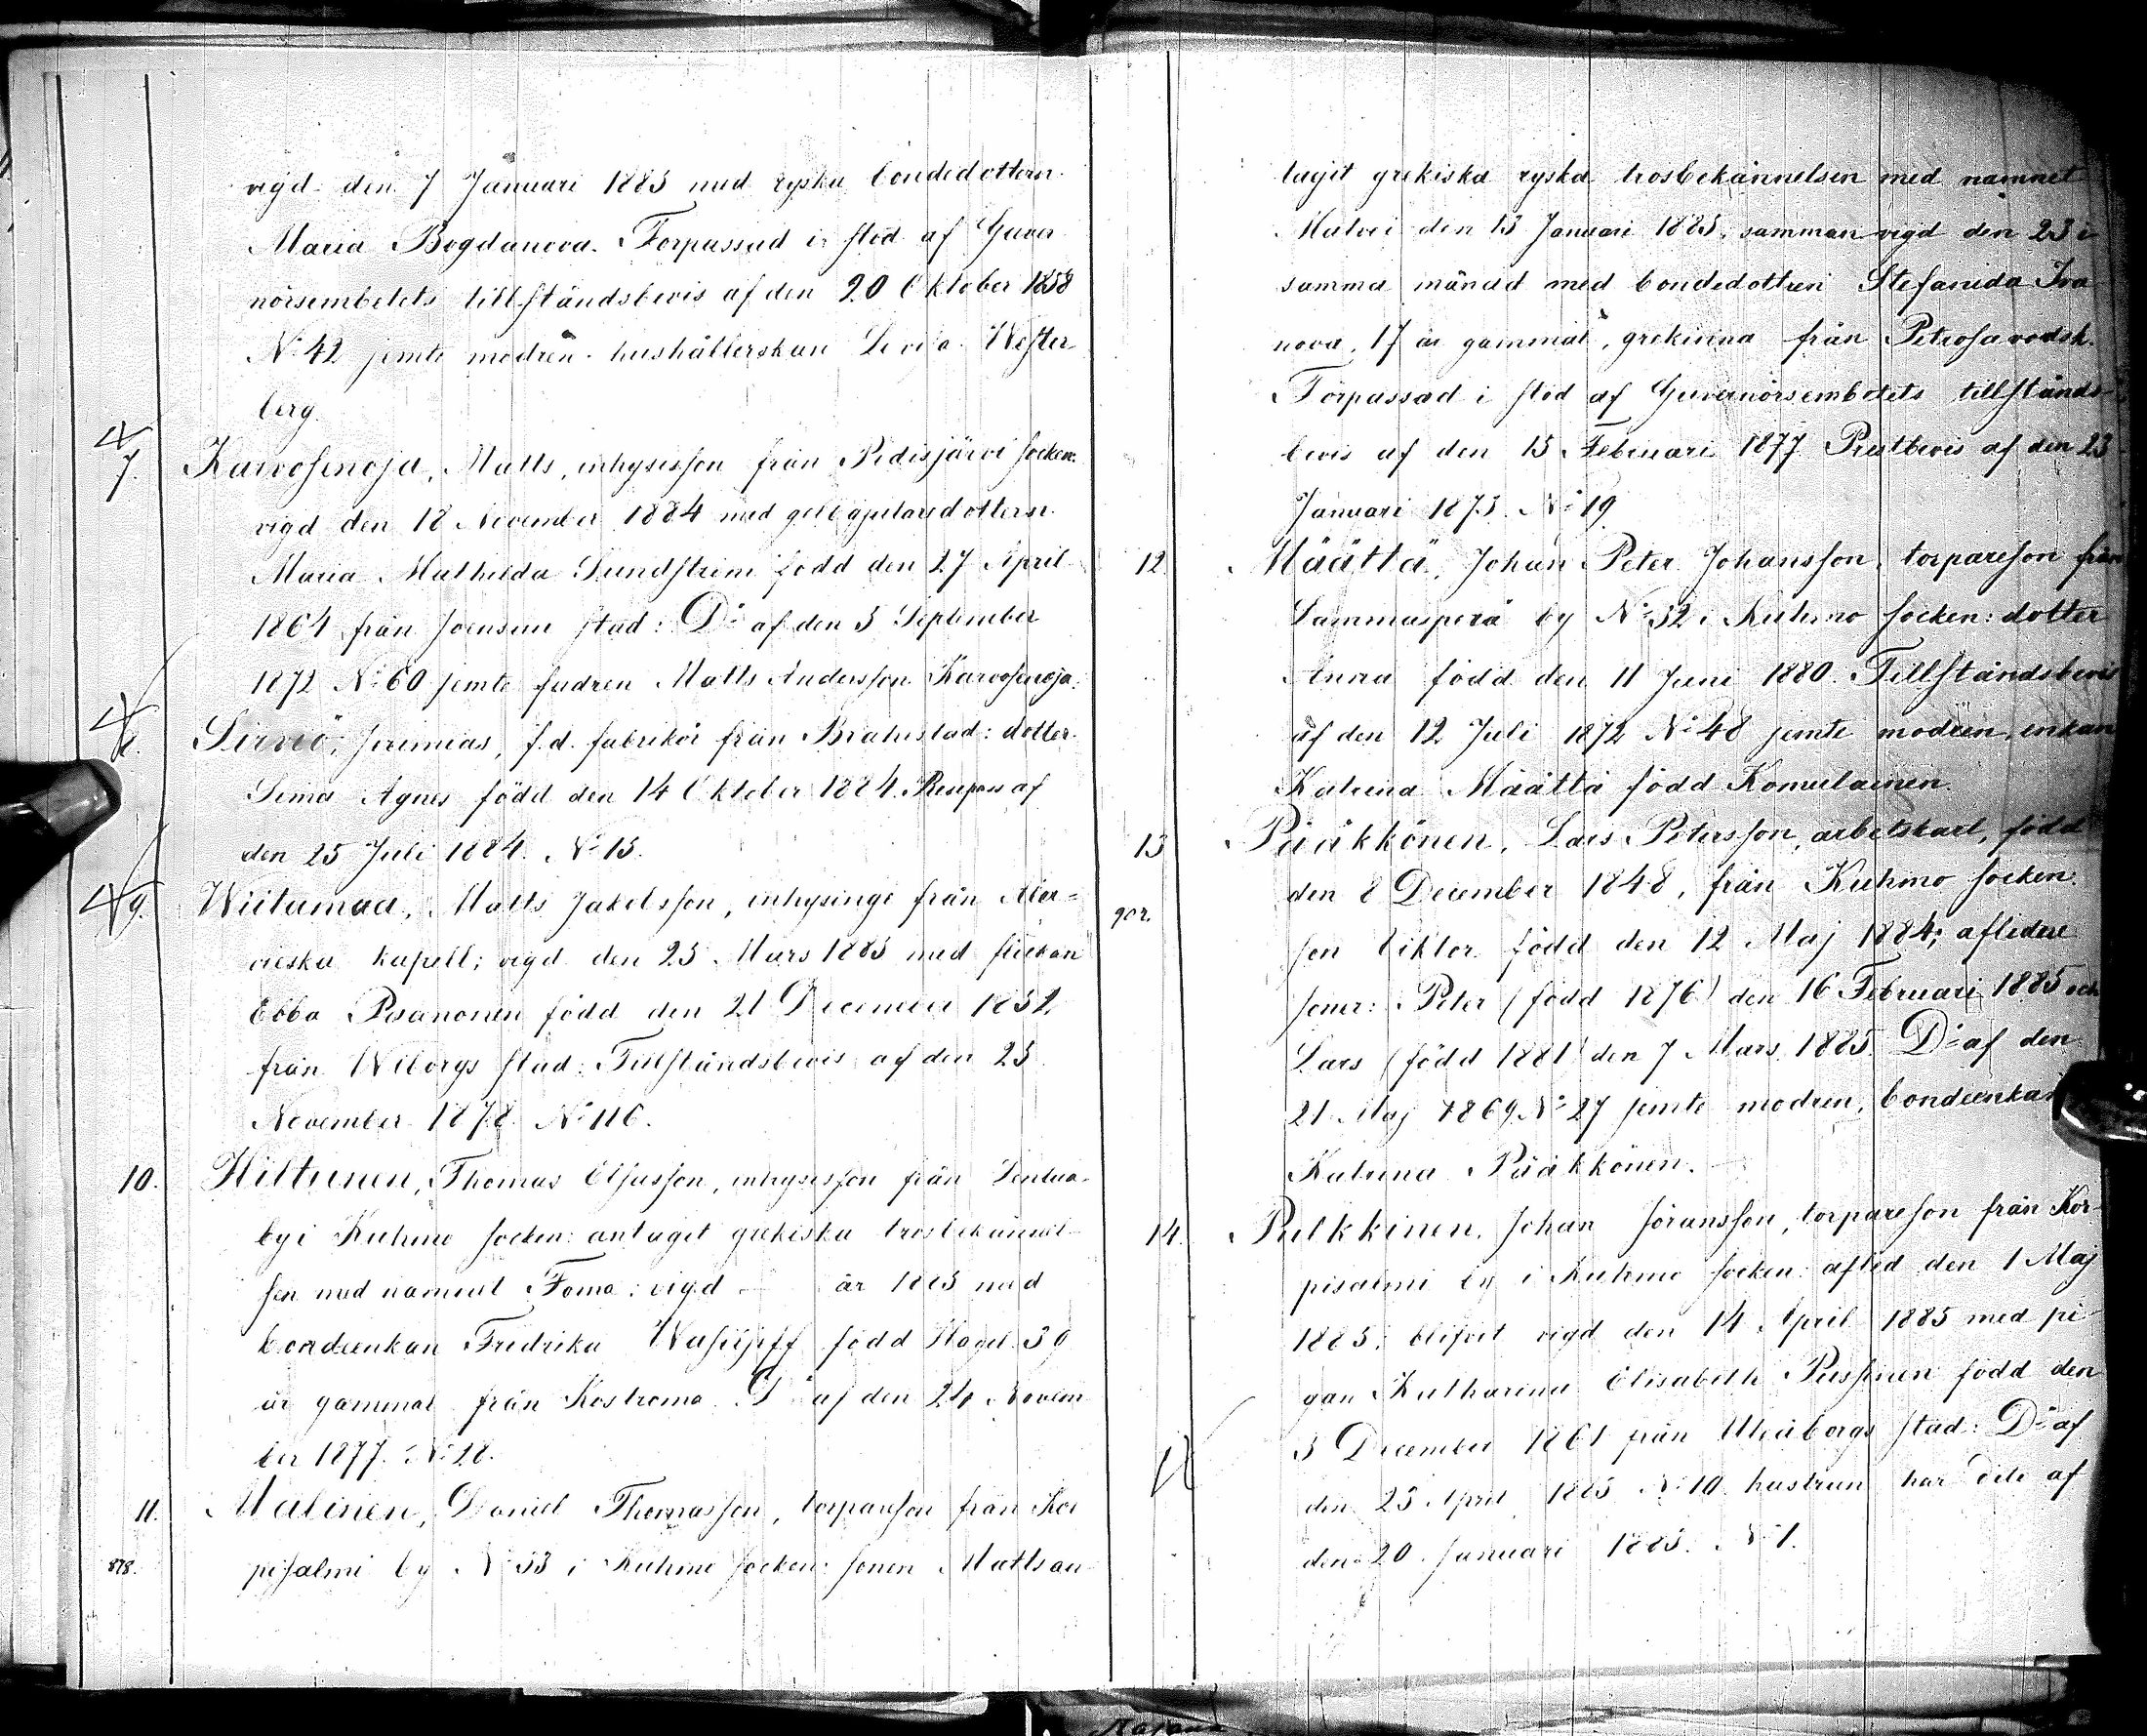 vigd den 7 Januari 1885 med ryska bondedottern
Maria Bogdanova. Förpassad i stöd af Guver
nörsembetets tillståndsbevis af den 20 Oktober 1858
No 42 jemte modren hushållerskan Lovisa Wester
berg.
7. Karvosenoja, Matts, inhysesson från Pidisjärvi socken
vigd den 18 November 1884 med
Maria Mathilda Sundström född den 27 April
1864 från Joensuu stad: Do af den 3 September
1872 No 60 jemte fadren Matts Andersson Karvosenoja.
8. Sirviö, Jeremias, f.d. fabrikör från Brahestad: dotter
Sima Agnes född den 14 Oktober 1884. Respass af
den 25 Juli 1884. No 15.
9. Wiitamaa, Matts Jakobsson, inhysinge från Mer=
vieska kapell; vigd den 25 Mars 1885 med flickan
Ebba Pisanonen född den 21 December 1852
från Wiborgs stad: Tillståndsbevis af den 25
November 1878 No 116.
10. Hiltunen, Thomas Eliasson, inhysesson från Lentua
by i Kuhmo socken: antagit grekiska trosbekännel
sen med namnet Foma: vigd – år 1885 med
bondeenkan Fredrika Wasiljeff född Hagel 39
år gammal från Kostroma. Do af den 24 Novem
ber 1877. No 28.
11. Malinen, Daniel Thomasson, torpareson från Kor
878. pisalmi by No 33 i Kuhmo socken: sonen Matts an
tagit grekiska ryska trosbekännelsen med namnet
Matvei den 13 Januari 1885, samman vigd den 23 i
samma månad med bondedottren Stefanida Iva
nova, 17 år gammal, grekinna från Petrosavodsk.
Förpassad i stöd af Guvernörsembetets tillstånds-
bevis af den 15 Februari 1877 Prestbevis af den 23
Januari 1873. No 19
12. Määttä, Johan Peter Johansson, torpareson från
Lammasperä by No 32 i Kuhmo socken: dotter
Anna född den 11 Juni 1880. Tillståndsbevis
af den 12 Juli 1872 No 48 jemte modren, enkan
Katrina Määttä född Komulainen.
13 Pääkkönen, Lars Petersson, arbetskarl, född
den 8 December 1848, från Kuhmo socken.
902.
son Viktor född den 12 Maj 1884; aflidne
söner: Peter (född 1876) den 16 Februari 1885 och
Lars (född 1881) den 7 Mars 1885. Do af den
21 Maj 1869 No 27 jemte modren, bondeenkan
Katrina Pääkkönen.
14. Pulkkinen, Johan Jöransson, torpareson från Kor
pisalmi by i Kuhmo socken: afled den 1 Maj
1885; blifvit vigd den 14 April 1885 med pi
gan Katharina Elisabeth Pussinen född den
3 December 1861 från Uleåborgs stad: Do af
den 25 April 1885 No 10. hustrun har dito af
den 20 Januari 1885. No 1.